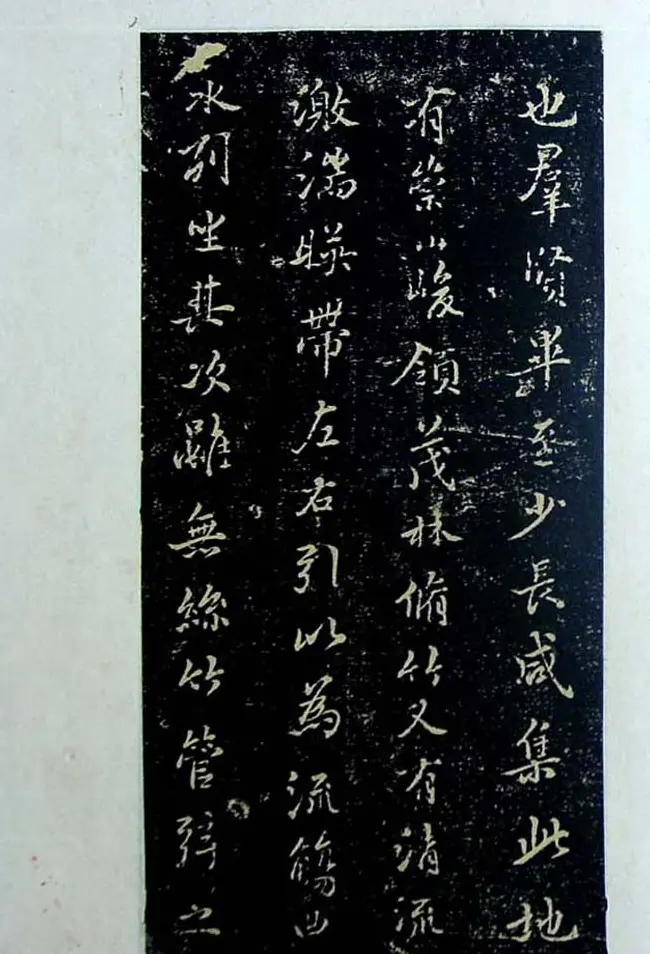 也羣賢畢至少長咸集此地
有崇山峻領茂林脩竹又有清流
激湍暎帶左右引以為流觴曲
水列坐其次雖無絲竹管弦之